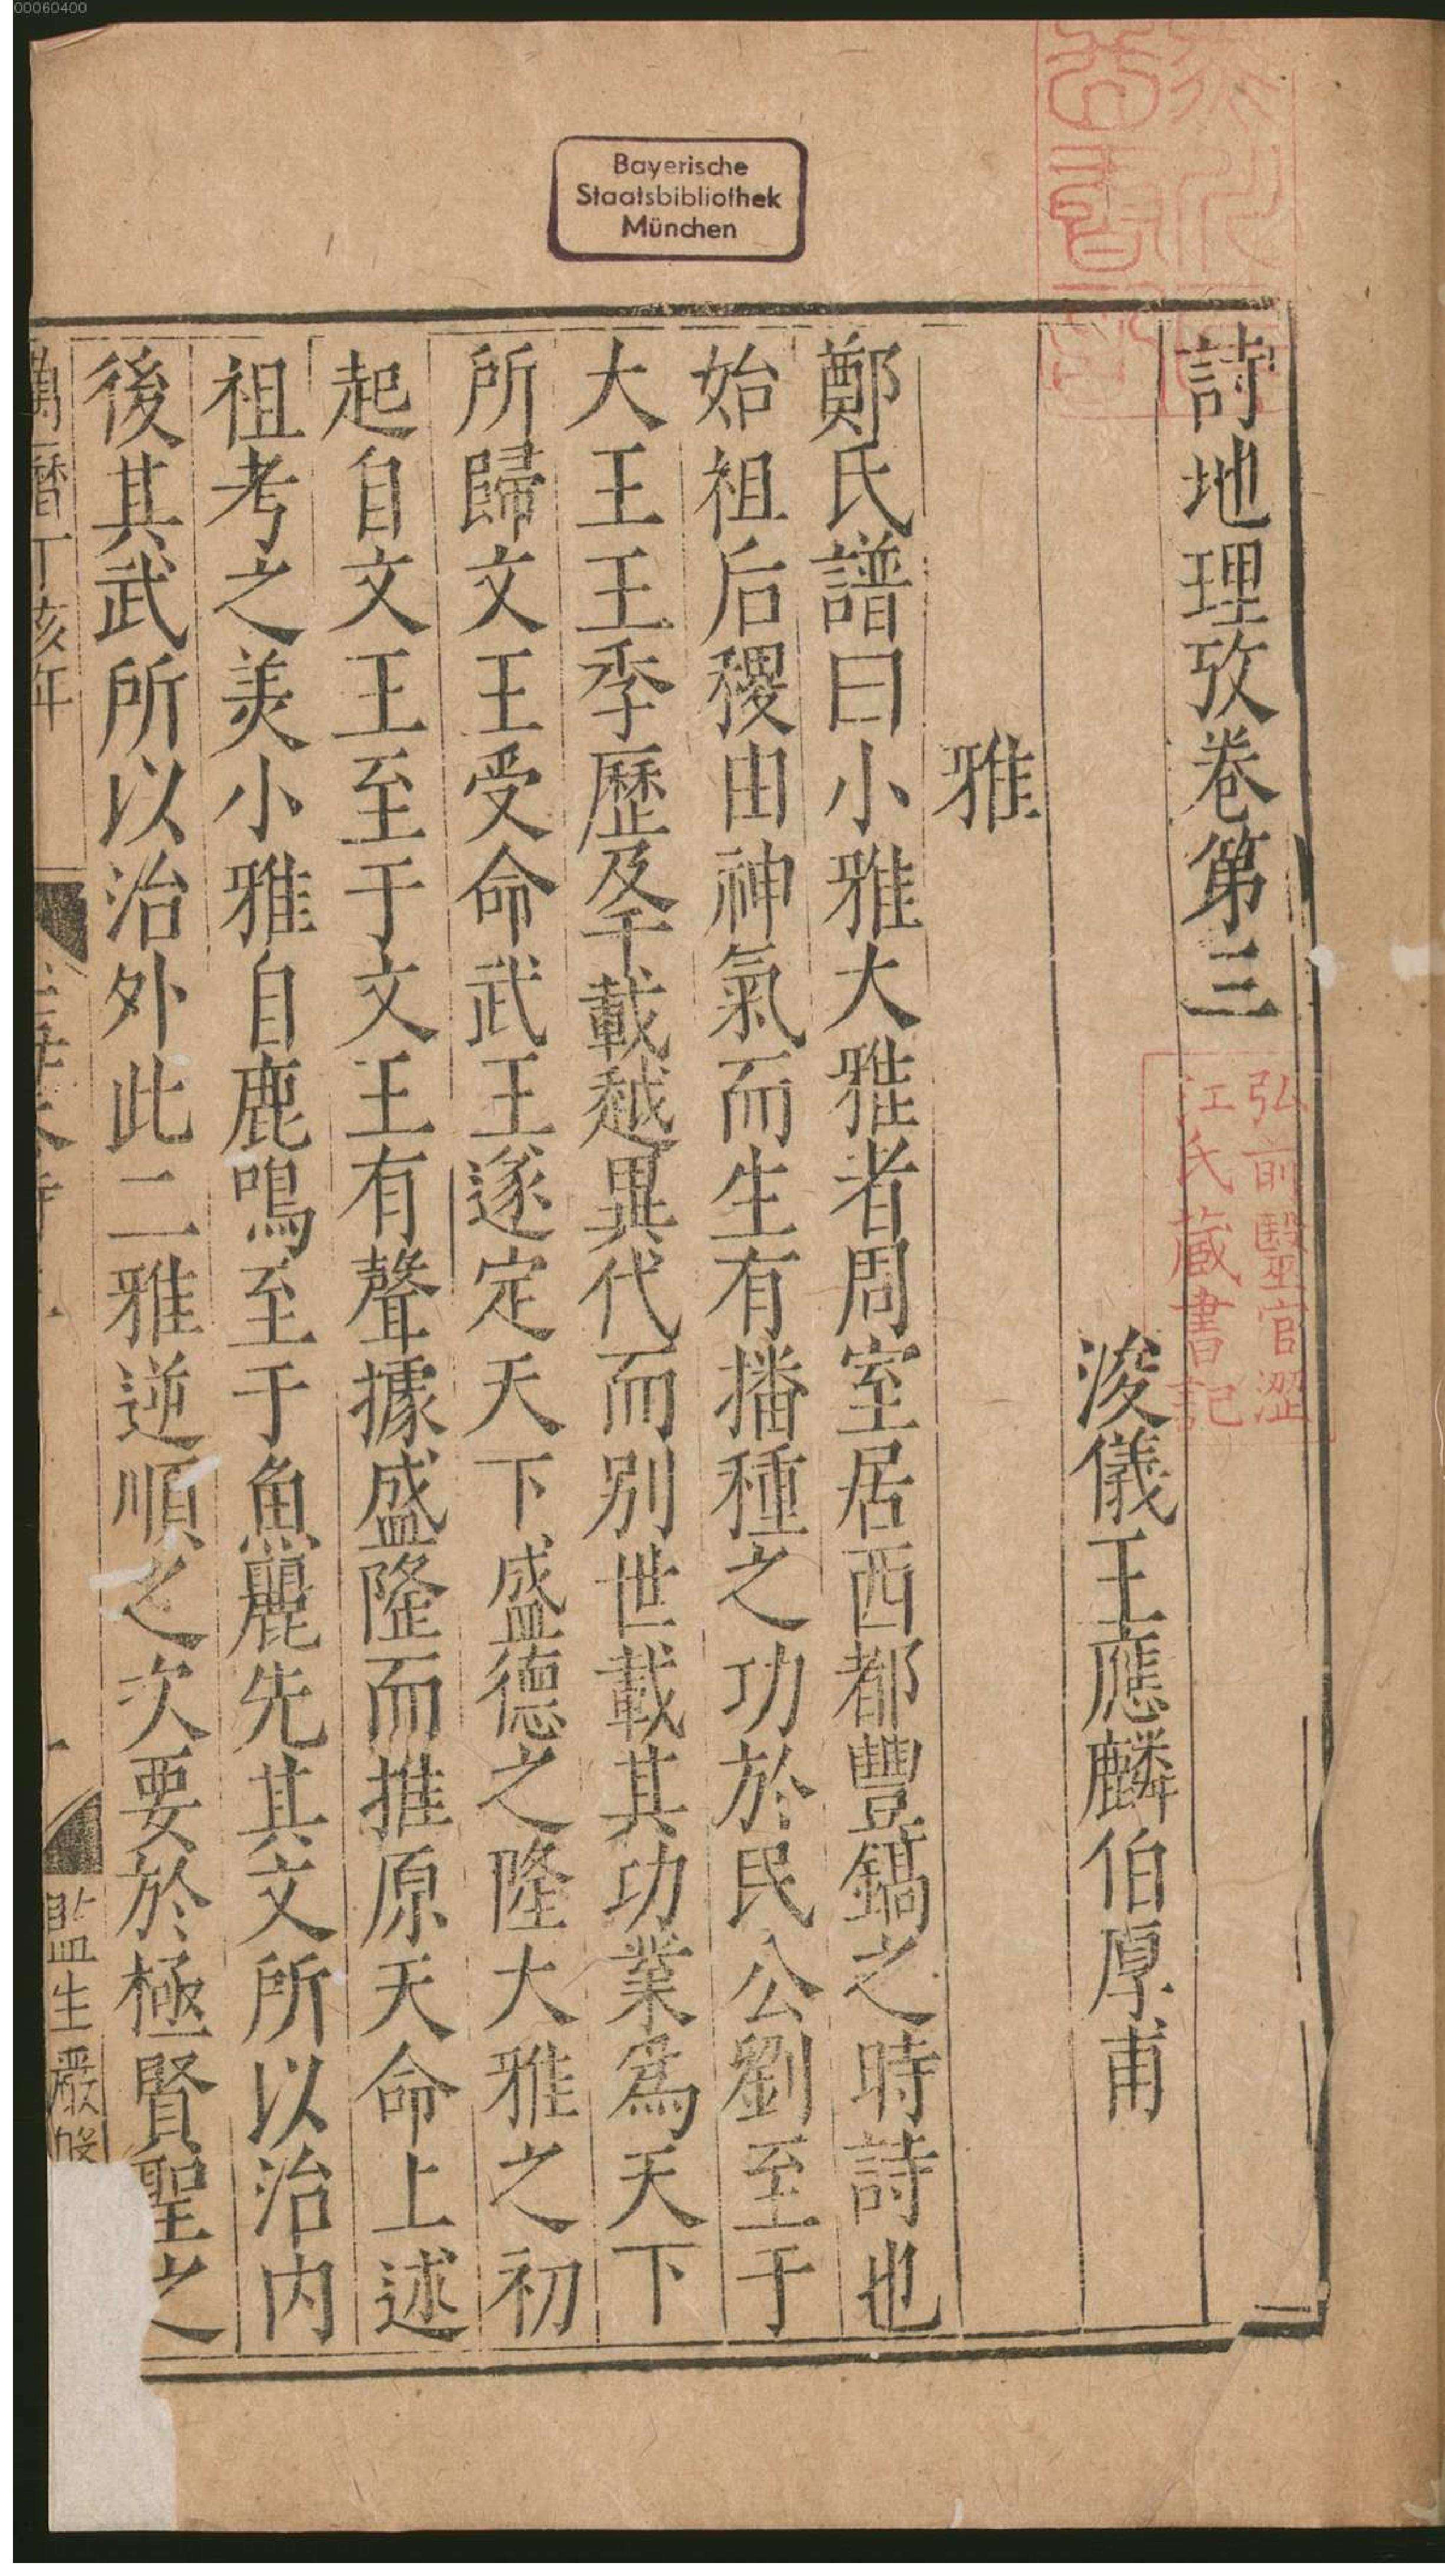 00060400
Bayerische
Staatsbibliothek
München
詩地理攷卷第三
弘前醫官澀
江氏藏書記
浚儀王應麟伯厚甫
雅
鄭氏譜曰小雅大雅者周室居西都豐鎬之時詩也
始祖后稷由神氣而生有播種之功於民公劉至于
大王王季歷及千載越異代而别世載其功業爲天下
所歸文王受命武王遂定天下盛德之隆大雅之初
起自文王至于文王有聲據盛隆而推原天命上述
祖考之美小雅自鹿鳴至于魚麗先其文所以治内
後其武所以治外此二雅逆順之次要於極賢聖之
萬曆丁亥年
監生嚴